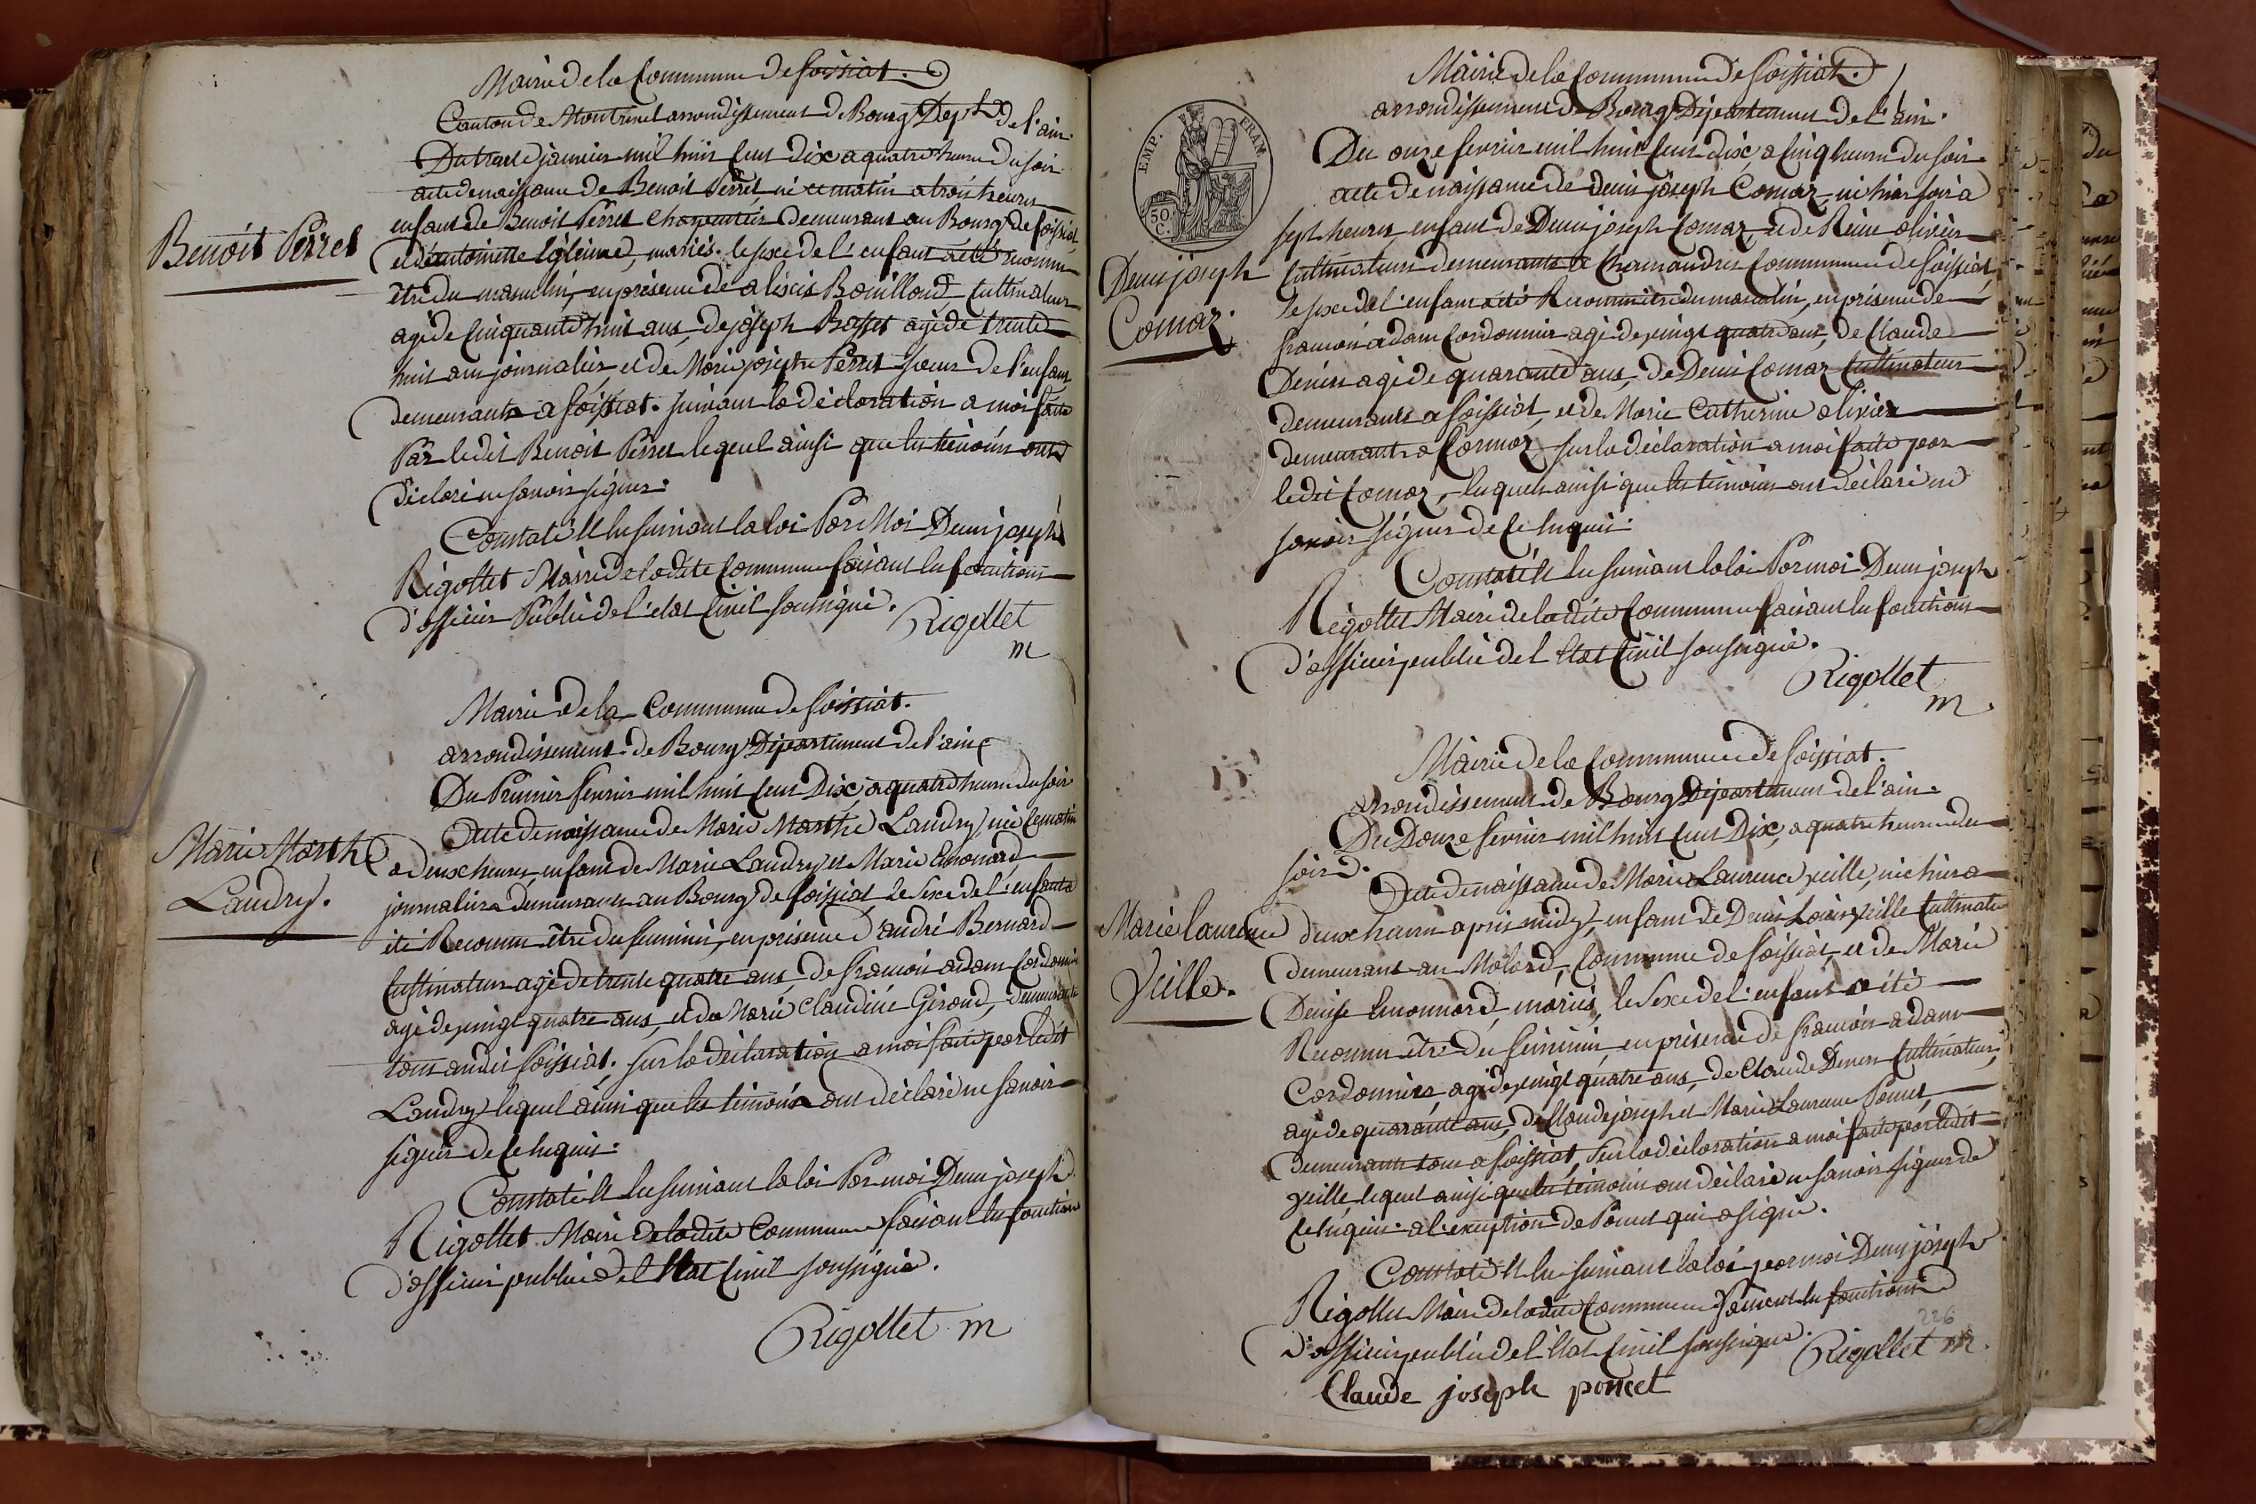 Mairie de la Commune de foissiat.
Canton de Montrevel arrondissement de Bourg Dept de l'ain.
Du trente janvier mil huit Cent Dix a quatre heures du soir
acte de naissance de Benoit Perret, né ce matin a trois heures
enfant de Benoit Perret Charpentier demeurant au Bourg de foissiat
et d'antoinette mariés. le sexe de l'enfant a été reconnu
être du masculin, en présence de alexis Bouilloud Cultivateur
agé de Cinquante huit ans, de joseph Basset agé de trente
huit ans journalier, et de Marie josephe Perret soeur de l'enfant
demeurants a foissiat. suivant la déclaration a moi faite
Par le dit Benoit Perret lequel ainsi que les témoins ont
déclaré ne savoir signer.
Benoit Perret
Constaté Et lu suivant la loi Par Moi Denis joseph
Rigollet Maire de la dite Commune faisant les fonctions
d'officier Public de l'état Civil soussigné.
Rigollet
m
Mairie de la Commune de foissiat.
arrondissement de Bourg Département de l'ain
Du Premier fevrier mil huit Cent Dix, a quatre heures du soir
Acte de naissance de Marie Marthe Landry, née ce matin
a deux heures, enfant de Marie Landry et Marie Emonard
journaliers demeurants au Bourg de foissiat le sexe de l'enfant a
été Reconnu être du feminin, en présence d'andré Bernard
Cultivateur agé de trente quatre ans, de francois adam Cordonnier
agé de vingt quatre ans, et de Marie Claudine Giraud, demeurants
tous audit foissiat. sur la déclaration a moi faite par ledit
Landry lequel ainsi que les témoins ont déclaré ne savoir
signer de ce requis.
Marie Marthe
Landry.
Constaté Et lu suivant la loi Par moi Denis joseph
Rigollet Maire de la dite Commune faisant les fonctions
d'officier public de l'Etat Civil soussigné.
Rigollet m
Mairie de la Commune de foissiat.
arrondissement de Bourg Département de l'ain.
Du onze fevrier mil huit Cent dix a Cinq heures du soir
acte de naissance de denis joseph Comaz, né hier soir a
sept heures, enfant de Denis joseph Comaz et de Reine olivier
Cultivateurs demeurants a Chermandrex Commune de foissiat,
le sexe de l'enfant a été Reconnu être du masculin, en présence de
francois adam Cordonnier agé de vingt quatre ans, de Claude
Denin agé de quarante ans, de Denis Comaz Cultivateur
demeurants a foissiat, et de Marie Catherine olivier
demeurant a Cormoz, sur la déclaration a moi faite par
le dit Comaz, lesquels ainsi que les témoins ont déclaré ne
savoir signer de Ce requis.
EMP. FRAN
50 C.
Denis joseph
Comaz.
Constaté Et lu suivant la loi Par moi Denis joseph
Rigollet Maire de la dite Commune faisant les fonctions
d'officier public de l'Etat Civil soussigné.
Rigollet
m.
Mairie de la Commune de foissiat.
arrondissement de Bourg Département de l'ain.
Du Douze fevrier mil huit Cent Dix, a quatre heures du
soir.
Acte de naissance de Marie Laurence yeille, née hier a
deux heures après midy, enfant de Denis Louis yeille Cultivateur
demeurant au Molard, Commune de foissiat, et de Marie
Denise Emonnard, mariés, le sexe de l'enfant a été
Reconnu être du féminin, en présence de francois adam
Cordonnier agé de vingt quatre ans, de Claude Denin Cultivateur,
agé de quarante ans, de Claude joseph et Marie Laurence Poncet,
demeurants tous a foissiat, sur la déclaration a moi faite par ledit
yeille, lequel ainsi que les témoins ont déclaré ne savoir signer de
Ce requis. a l'exception de Poncet qui a signé.
Marie laurence
Yeille.
Constaté Et lu suivant la loi par moi Denis joseph
Rigollet Maire de la dite Commune faisant les fonctions
d'officier public de l'Etat Civil soussigné. Rigollet m.
226
Claude joseph poncet